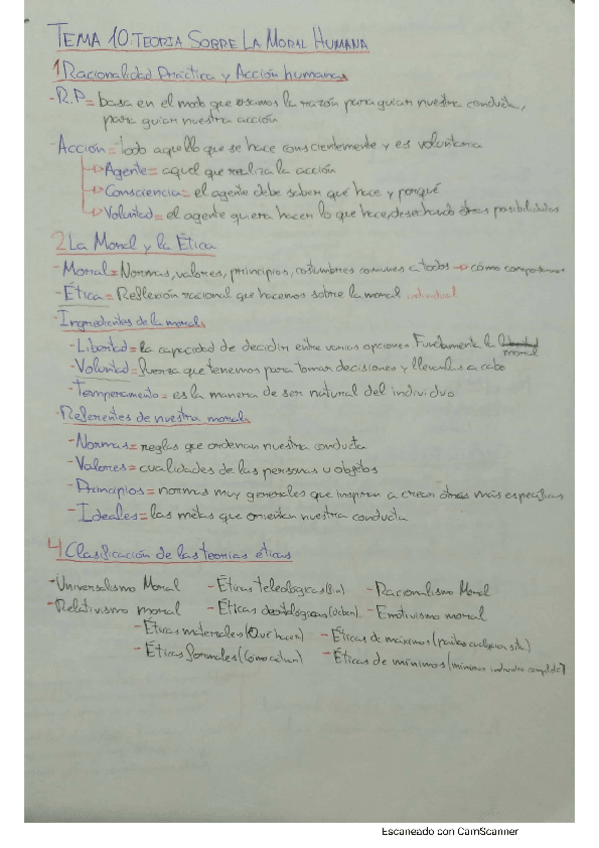 TEMA 10: TEORIA SOBRE LA MORAL HUMANA
1 Racionalidad Práctica y Acción humanas
- R.P = basa en el modo que usamos la razón para guiar nuestra conducta,
para guiar nuestra acción
- Acción = todo aquello que se hace conscientemente y es voluntaria
→ Agente = aquel que realiza la acción
→ Consciencia = el agente debe saber qué hace y porqué
→ Voluntad = el agente quiera hacer lo que hace, desechando otras posibilidades
2 La Moral y la Ética
- Moral = Normas, valores, principios, costumbres comunes a todos → cómo comportarnos
- Ética = Reflexión racional que hacemos sobre la moral individual
- Ingredientes de la moral
- Libertad = la capacidad de decidir entre varias opciones. Fundamenta la moral
- Voluntad = fuerza que tenemos para tomar decisiones y llevarlas a cabo
- Temperamento = es la manera de ser natural del individuo
- Referentes de nuestra moral
- Normas = reglas que ordenan nuestra conducta
- Valores = cualidades de las personas u objetos
- Principios = normas muy generales que inspiran a crear otras más específicas
- Ideales = las metas que orientan nuestra conducta
4 Clasificación de las teorías éticas
- Universalismo Moral - Éticas teleológicas (Fin) - Racionalismo Moral
- Relativismo moral - Éticas deontológicas (deber) - Emotivismo moral
- Éticas materiales (Qué hacer) - Éticas de máximos
- Éticas formales (Como actuar) - Éticas de mínimos
Escaneado con CamScanner